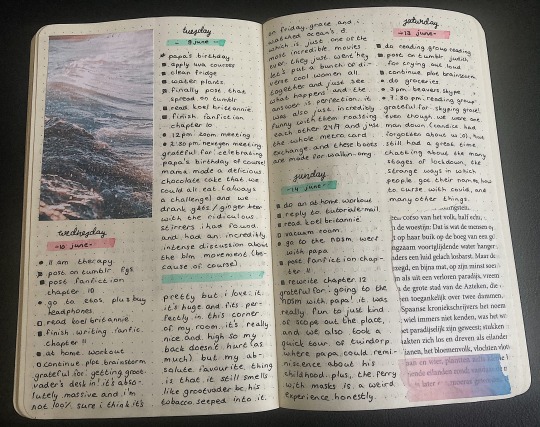 tuesday
- 9 june -
papa's birthday
apply uva courses
clean fridge
water plants
finally post that
spread on tumblr
read koel britannie
finish fanfiction
chapter 10
12 pm: zoom meeting
grateful for: celebrating
papa's birthday of course!
mama made a delicious
chocolate cake that we
could all eat (always
a challenge) and we
drank g&ts / ginger beer
with the ridiculous
stirrers i had found
and had an incredibly
intense discussion about
the blm movement (be-
cause of course)
wednesday
- 10 june -
11 am therapy
post on tumblr
post fanfiction
chapter 10
go to etos, plus buy
headphones
read koel britannie
finish writing fanfic
chapter 11
at home workout
continue plot brainstorm
grateful for: getting groot-
vader's desk in! it's abso-
lutely massive and i'm
not 100% sure i think it's
pretty but i love it.
it's huge and fits per-
fectly in this corner
of my room. it's really
nice and high (so my
back doesn't hurt as
much) but my ab-
salute favourite thing
is that it still smells
like grootvader be his
tobacco seeped into it.
on friday grace and i
watched ocean's 8
which is just one of the
most incredible movies
ever. they just went hey
let's put a bunch of di-
verse cool women all
together and just see
what happens! and the
answer is perfection. it
was also just incredibly
funny with them roasting
each other 24/7 and just
the whole metro card
exchange and these boots
are made for walking. omg.
sunday
- 14 june -
do an at home workout
reply to tutoralemail
read koel britannie
vacuum room
go to the ndsm werf
with papa
post fanfiction chap-
ter 11
rewrite chapter 12
grateful for: going to the
ndsm with papa! it was
really fun to just kind
of scope out the place,
and we also took a
quick tour of tuindorp
where papa could remi-
niscence about his
childhood. plus, the ferry
with masks is a weird
experience honestly.
saturday
- 13 june -
do reading group reading
post on tumblr, judith
for crying out loud
continue plot brainstorm
do groceries
3 pm: beavers skype
7:30 pm: reading group
grateful for: skyping
even though we were one
man down (candice had
forgotten about us :0), but
still had a great time
chatting about the many
stages of lockdown, the
strange ways in which
people got their names, how
to curse with covid, and
many other things.
corso van het volk, half echt,
de woestijn: Dat is wat de mensen
op haar buik op de boeg van een
ngzaam voortglijdende water hangen
nders een luid gelach losbarst. Maar
ezogd, en bijna mat, op zijn minst
als uit een verloren paradijs, vreem
de grote stad van de Azteken, die
en toegankelijk over twee dammen,
Spaanse kroniekschrijvers het noem
wel immers niet kenden, was het we
et paradijselijk zijn geweest; stukken
akten zich los en dreven als eilanden
janen, het bloemenvolk, vlochten vlot